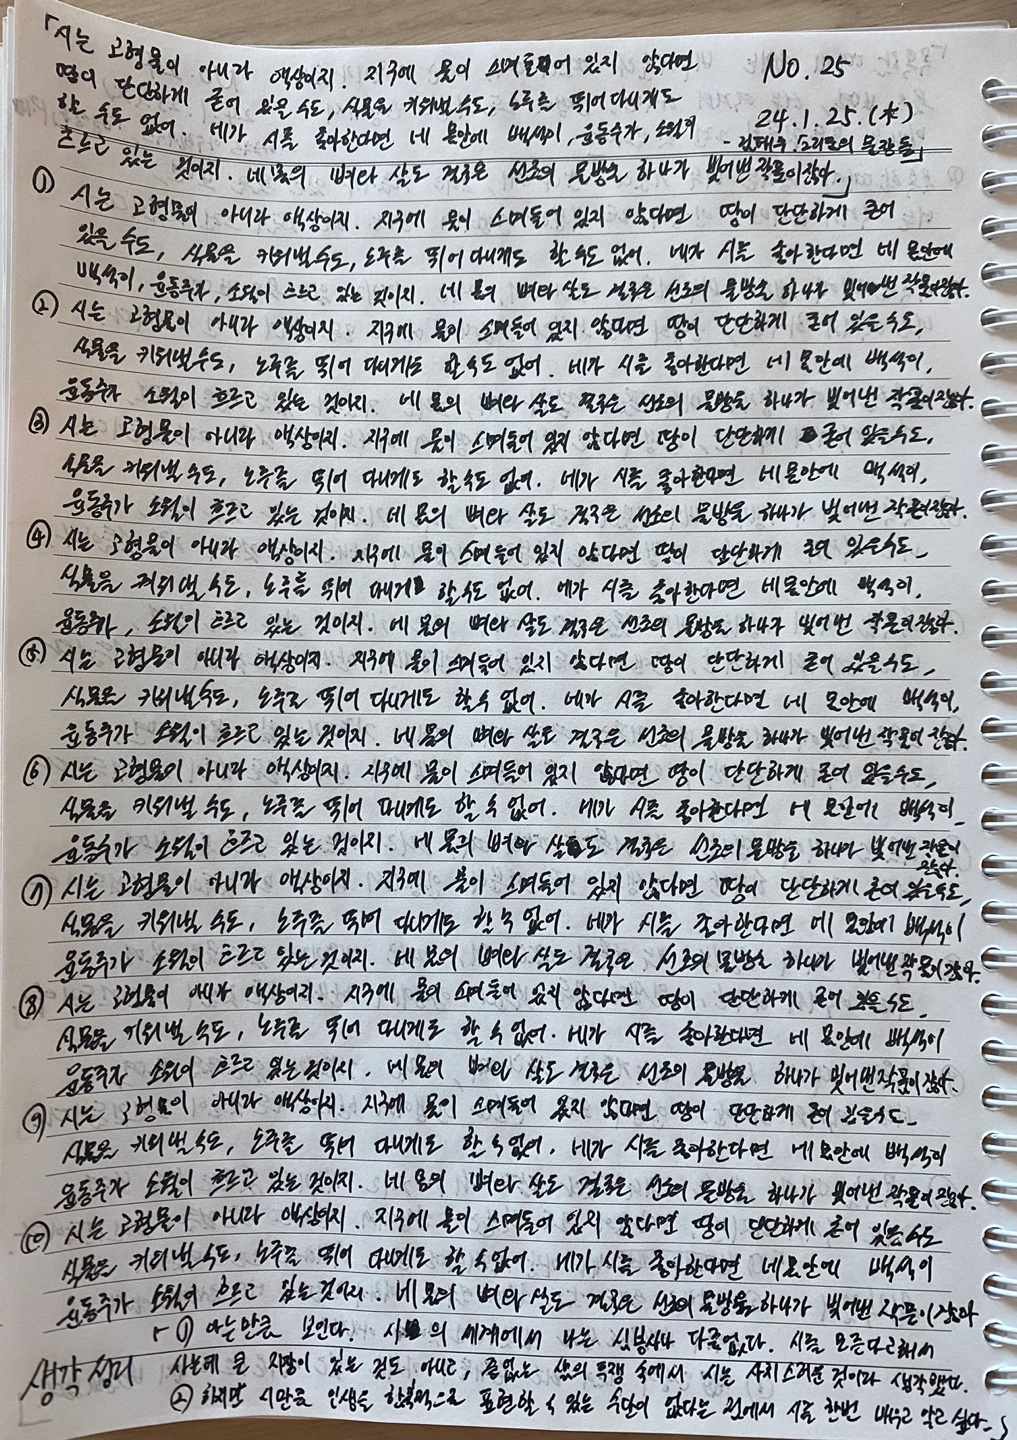 「시는 고형물이 아니라 액상이지. 지구에 물이 스며들어 있지 않다면
No. 25
땅이 단단하게 굳어 있을 수도, 식물을 키워낼 수도, 노루를 뛰어다니게도
할 수도 없어. 네가 시를 좋아한다면 네 몸안에 백석이, 윤동주가, 소월이
24.1.25.(木)
흐르고 있는 것이지. 네 몸의 뼈와 살도 결국은 선조의 물방울 하나가 빚어낸 작물이잖아.」
① 시는 고형물이 아니라 액상이지. 지구에 물이 스며들어 있지 않다면 땅이 단단하게 굳어
있을 수도, 식물을 키워낼 수도, 노루를 뛰어 다니게도 할 수도 없어. 네가 시를 좋아한다면 네 몸안에
백석이, 윤동주가, 소월이 흐르고 있는 것이지. 네 몸의 뼈와 살도 결국은 선조의 물방울 하나가 빚어낸 작물이잖아.
② 시는 고형물이 아니라 액상이지. 지구에 물이 스며들어 있지 않다면 땅이 단단하게 굳어 있을 수도,
식물을 키워낼 수도, 노루를 뛰어 다니게도 할 수도 없어. 네가 시를 좋아한다면 네 몸안에 백석이,
윤동주가 소월이 흐르고 있는 것이지. 네 몸의 뼈와 살도 결국은 선조의 물방울 하나가 빚어낸 작물이잖아.
③ 시는 고형물이 아니라 액상이지. 지구에 물이 스며들어 있지 않다면 땅이 단단하게 굳어 있을 수도,
식물을 키워낼 수도, 노루를 뛰어 다니게도 할 수도 없어. 네가 시를 좋아한다면 네 몸안에 백석이,
윤동주가 소월이 흐르고 있는 것이지. 네 몸의 뼈와 살도 결국은 선조의 물방울 하나가 빚어낸 작물이잖아.
④ 시는 고형물이 아니라 액상이지. 지구에 물이 스며들어 있지 않다면 땅이 단단하게 굳어 있을 수도,
식물을 키워낼 수도, 노루를 뛰어 다니게 할 수도 없어. 네가 시를 좋아한다면 네 몸안에 백석이,
윤동주가, 소월이 흐르고 있는 것이지. 네 몸의 뼈와 살도 결국은 선조의 물방울 하나가 빚어낸 작물이잖아.
⑤ 시는 고형물이 아니라 액상이지. 지구에 물이 스며들어 있지 않다면 땅이 단단하게 굳어 있을 수도,
식물을 키워낼 수도, 노루를 뛰어 다니게도 할 수 없어. 네가 시를 좋아한다면 네 몸안에 백석이,
윤동주가 소월이 흐르고 있는 것이지. 네 몸의 뼈와 살도 결국은 선조의 물방울 하나가 빚어낸 작물이잖아.
⑥ 시는 고형물이 아니라 액상이지. 지구에 물이 스며들어 있지 않다면 땅이 단단하게 굳어 있을 수도,
식물을 키워낼 수도, 노루를 뛰어 다니게도 할 수 없어. 네가 시를 좋아한다면 네 몸안에 백석이,
윤동주가 소월이 흐르고 있는 것이지. 네 몸의 뼈와 살도 결국은 선조의 물방울 하나가 빚어낸 작물이잖아.
⑦ 시는 고형물이 아니라 액상이지. 지구에 물이 스며들어 있지 않다면 땅이 단단하게 굳어 있을 수도,
식물을 키워낼 수도, 노루를 뛰어 다니게도 할 수 없어. 네가 시를 좋아한다면 네 몸안에 백석이
윤동주가 소월이 흐르고 있는 것이지. 네 몸의 뼈와 살도 결국은 선조의 물방울 하나가 빚어낸 작물이잖아.
⑧ 시는 고형물이 아니라 액상이지. 지구에 물이 스며들어 있지 않다면 땅이 단단하게 굳어 있을 수도,
식물을 키워낼 수도, 노루를 뛰어 다니게도 할 수 없어. 네가 시를 좋아한다면 네 몸안에 백석이
윤동주가 소월이 흐르고 있는 것이지. 네 몸의 뼈와 살도 결국은 선조의 물방울 하나가 빚어낸 작물이잖아.
⑨ 시는 고형물이 아니라 액상이지. 지구에 물이 스며들어 있지 않다면 땅이 단단하게 굳어 있을 수도
식물을 키워낼 수도, 노루를 뛰어 다니게도 할 수 없어, 네가 시를 좋아한다면 네 몸안에 백석이
윤동주가 소월이 흐르고 있는 것이지. 네 몸의 뼈와 살도 결국은 선조의 물방울 하나가 빚어낸 작물이잖아.
⑩ 시는 고형물이 아니라 액상이지. 지구에 물이 스며들어 있지 않다면 땅이 단단하게 굳어 있을 수도
식물을 키워낼 수도, 노루를 뛰어 다니게도 할 수 없어. 네가 시를 좋아한다면 네 몸안에 백석이
윤동주가 소월이 흐르고 있는 것이지. 네 몸의 뼈와 살도 결국은 선조의 물방울 하나가 빚어낸 작물이잖아
생각정리
「① 아는만큼 보인다. 시의 세계에서 나는 다름없다. 시를 모른다고해서
사는데 큰 지장이 있는 것도 아니고, 끝없는 생의 투쟁 속에서 시는 사치스러운 것이라 생각했다.
② 하지만 시만큼 인생을 함축적으로 표현할 수 있는 수단이 없다는 점에서 시를 한번 배우고 알고 싶다.」